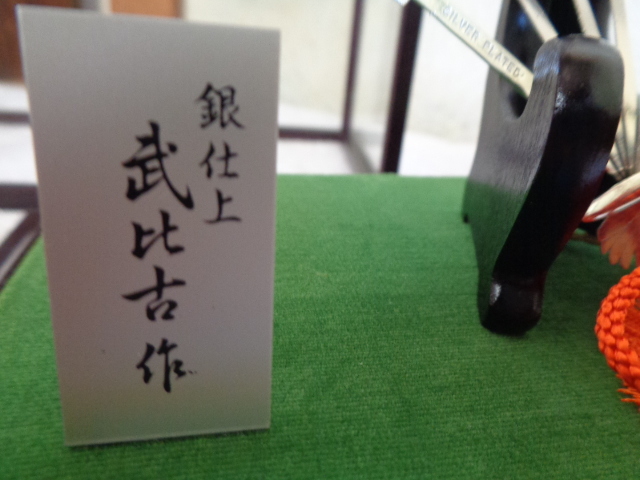 銀仕上
武比古作
"SILVER PLATED"